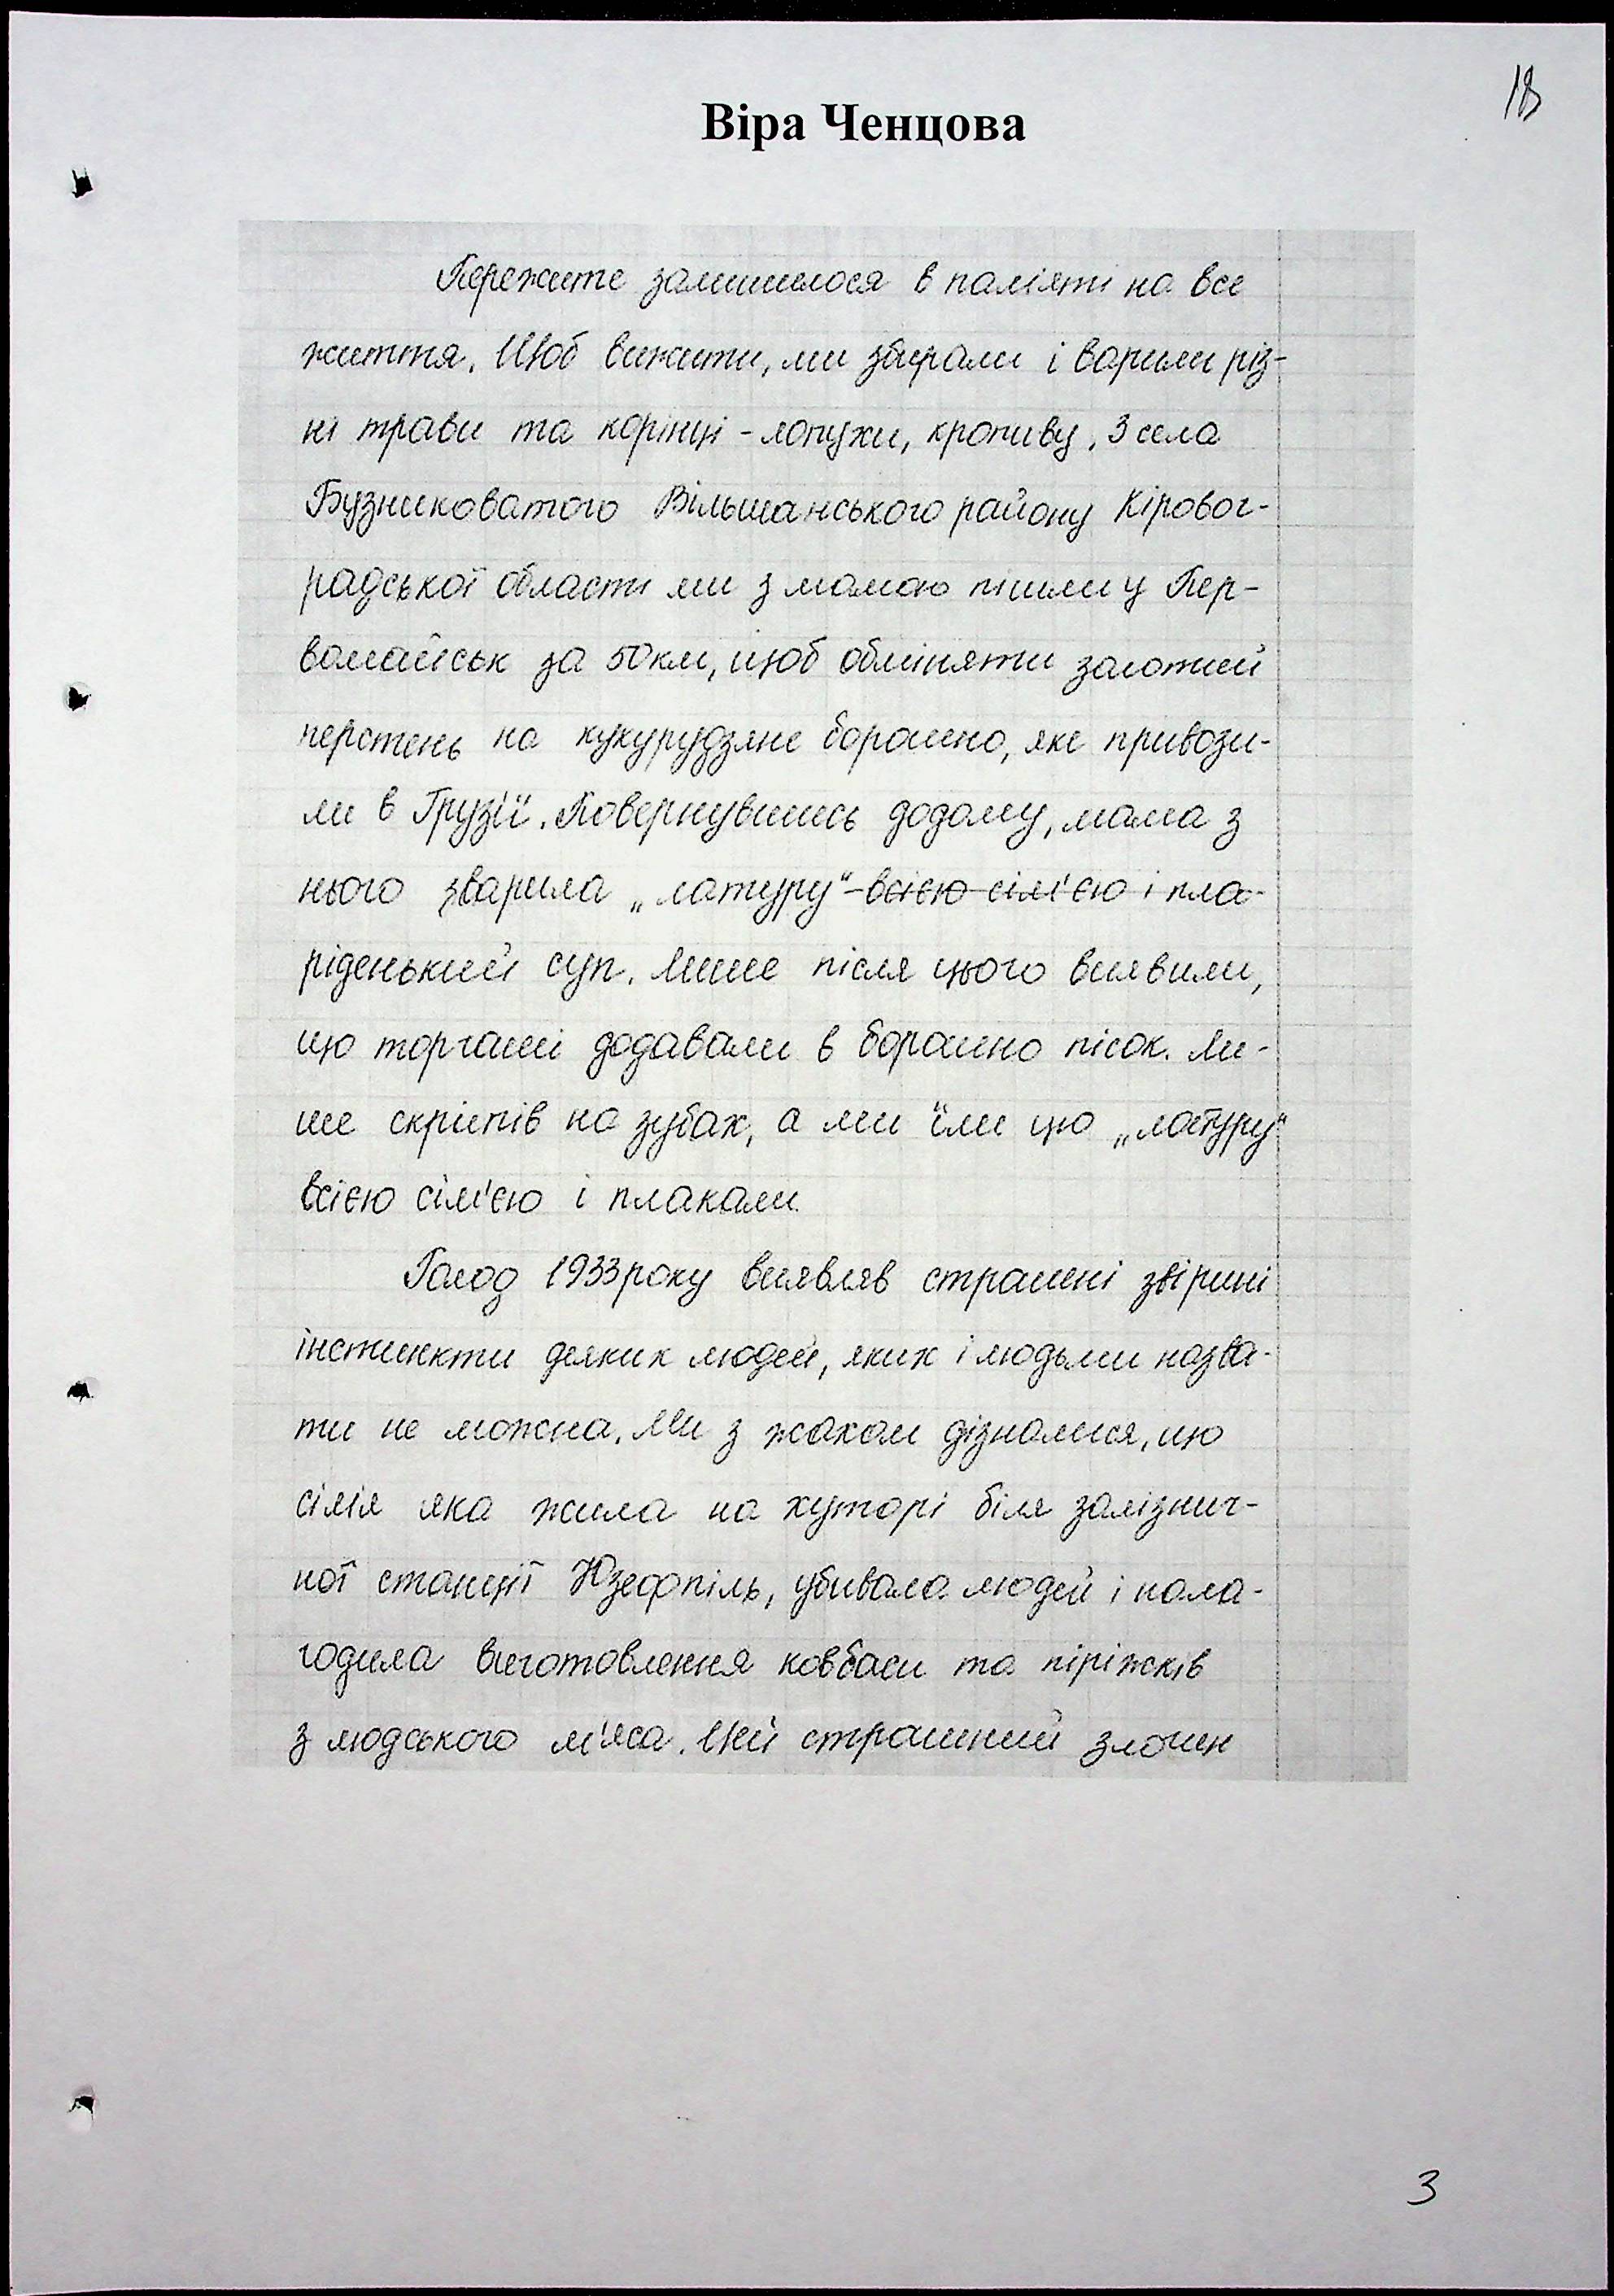 18
Віра Ченцова
Пережите залишилося в пам'яті на все
життя. Щоб вижити, ми збирали і варили різ-
ні трави та корінці - лопухи, кропиву. З села
Бузниковатого Вільшанського району Кіровог-
радської області ми з мамою пішли у Пер-
вомайськ за 50км, щоб обміняти золотий
перстень на кукурудзяне борошно, яке привози-
ли в Грузії. Повернувшись додому, мама з
нього зварила „матуру" - всією сім'єю і пла-
ріденький суп. Лише після цього виявили,
що торгаші додавали в борошно пісок. Ли-
ше скріпів на зубах, а ми їли цю „матуру"
всією сім'єю і плакали.
Голод 1933року виявляв страшні звірині
інстинкти деяких людей, яких і людьми назва-
ти не можна. Ми з жахом дізналися, що
сім'я яка жила на хуторі біля залізнич-
ної станції Юзефпіль, убивала людей і нала-
годила виготовлення ковбаси та піріжків
з людського м'яса. Цей страшний злочин
3